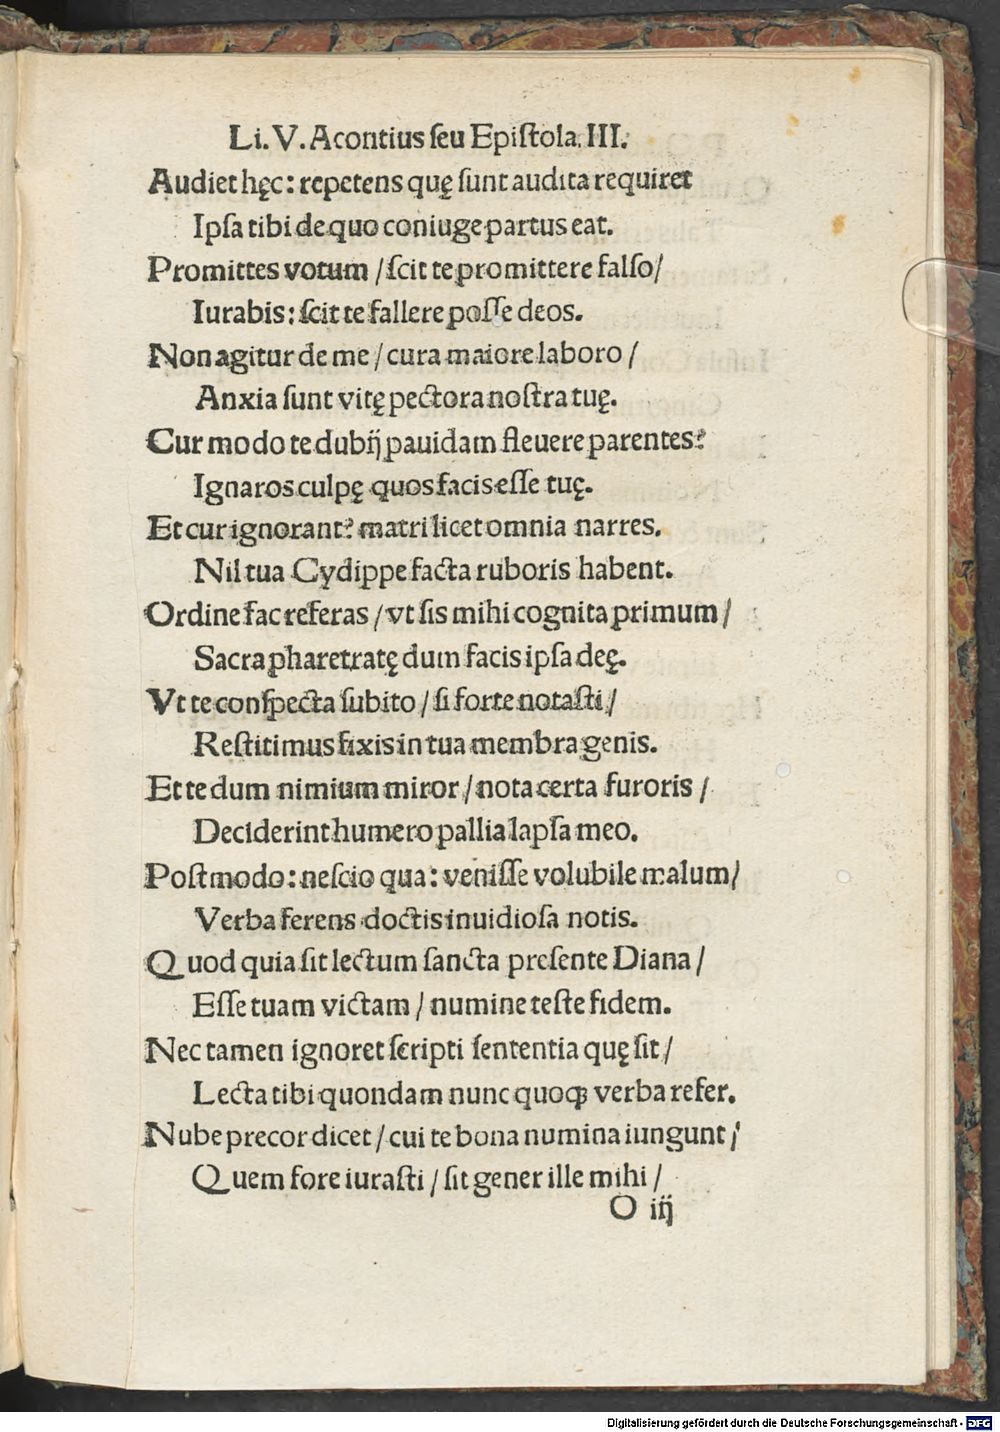 Li. V. Acontius ſeu Epiſtola. III.
Audiet hęc: repetens quę ſunt audita requiret
Ipſa tibi de quo coniuge partus eat.
Promittes votum / ſcit te promittere falſo /
Iurabis: ſcit te fallere poſſe deos.
Non agitur de me / cura maiore laboro /
Anxia ſunt vitę pectora noſtra tuę.
Cur modo te dubij pauidam fleuere parentes?
Ignaros culpę quos facis eſſe tuę.
Et cur ignorant? matri licet omnia narres.
Nil tua Cydippe facta ruboris habent.
Ordine fac referas / vt ſis mihi cognita primum /
Sacra pharetratę dum facis ipſa deę.
Vt te conſpecta ſubito / ſi forte notaſti /
Reſtitimus fixis in tua membra genis.
Et te dum nimium miror / nota certa furoris /
Deciderint humero pallia lapſa meo.
Poſtmodo: neſcio qua: veniſſe volubile malum /
Verba ferens doctis inuidioſa notis.
Quod quia ſit lectum ſancta preſente Diana /
Eſſe tuam victam / numine teſte fidem.
Nec tamen ignoret ſcripti ſententia quę ſit /
Lecta tibi quondam nunc quoqꝫ verba refer.
Nube precor dicet / cui te bona numina iungunt /
Quem fore iuraſti / ſit gener ille mihi /
O iij
Digitalisierung gefördert durch die Deutsche Forschungsgemeinschaft - DFG